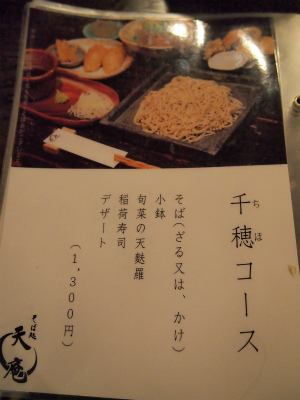 千穂コース
ちほ
そば(ざる又は、かけ)
小鉢
旬菜の天麩羅
稲荷寿司
デザート
(1,300円)
そば処
天庵